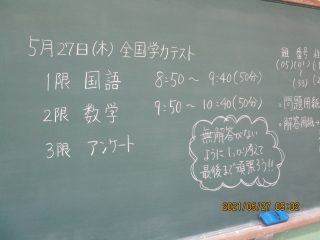 5月27日(木) 全国学力テスト
1限 国語 8:50～9:40(50分)
2限 数学 9:50～10:40(50分)
3限 アンケート
無解答がない
ようにしっかり考えて
最後まで頑張ろう!!
組 番号
(05)(01)
(33)
問題用紙
解答用紙
2021/05/27 05:03